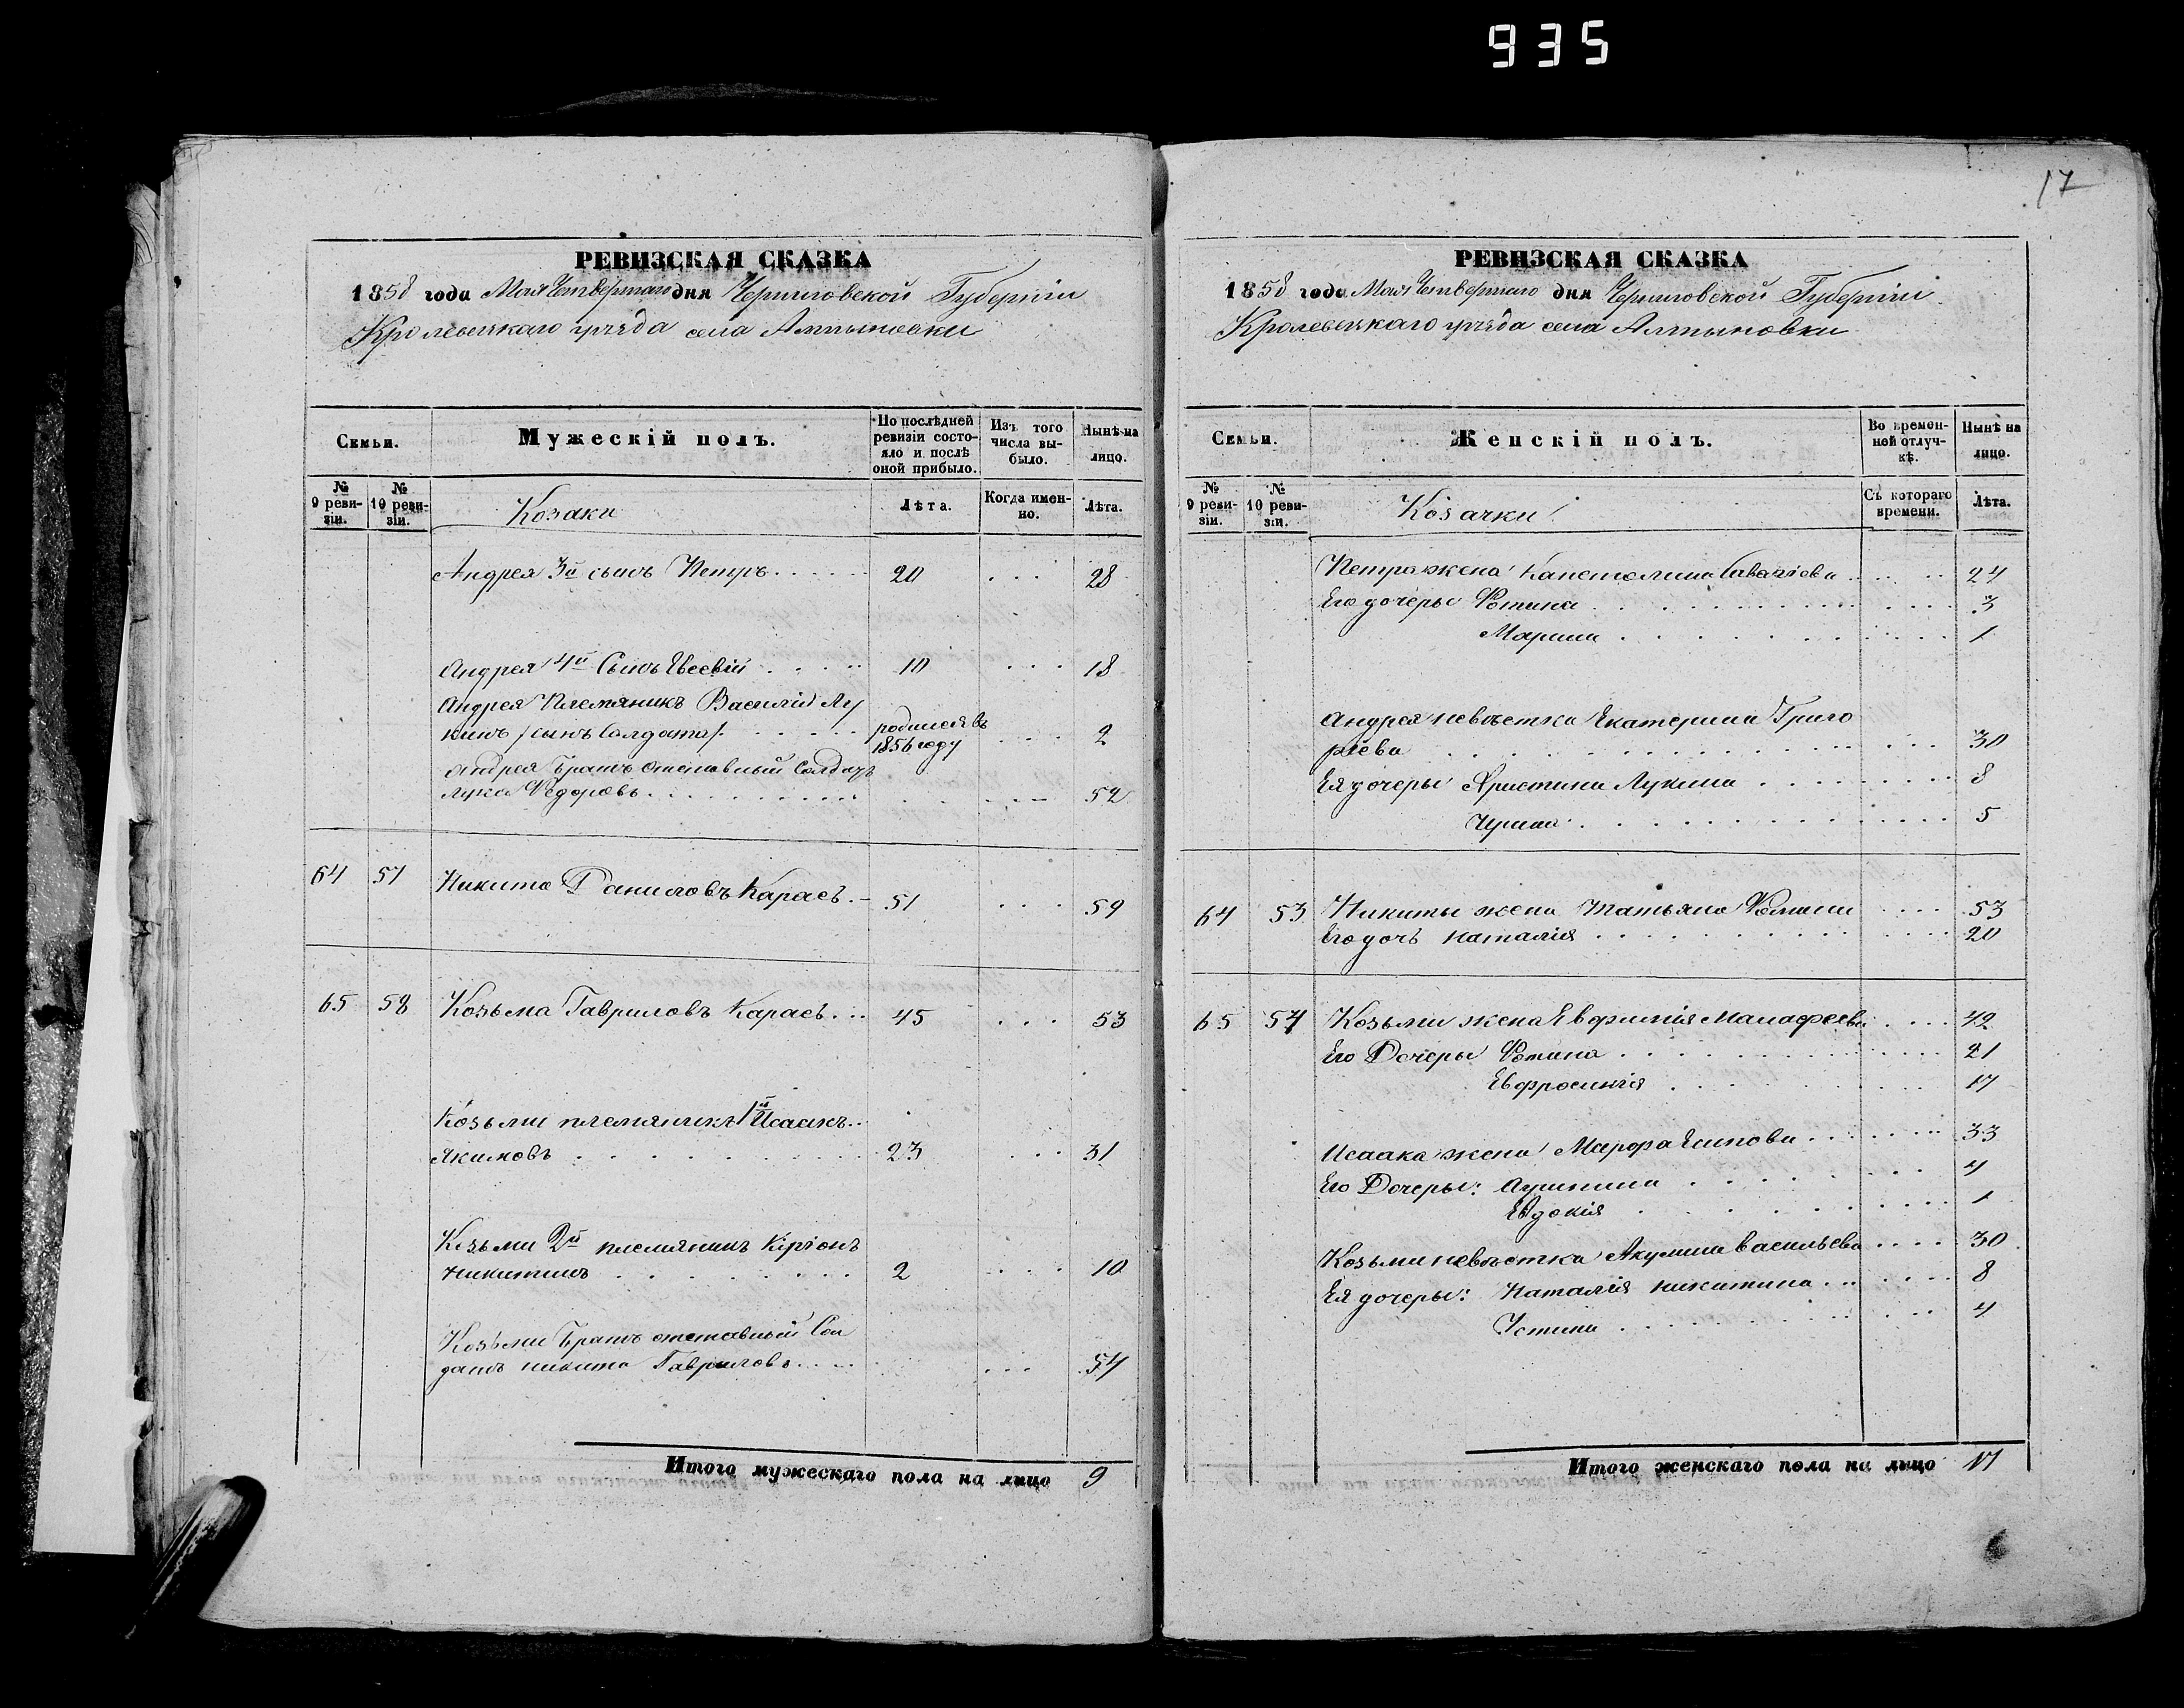 935
РЕВИЗСКАЯ СКАЗКА
1858 года Мая Четвертаго дня Черниговской Губерніи
Кролевецкаго уѣзда села Алтыновки
Семьи.
Мужескій полъ.
По послѣдней ревизіи состояло и послѣ оной прибыло.
Изъ того числа выбыло.
Нынѣ на лицо.
№ 9 ревизіи.
№ 10 ревизіи.
Козаки
Лѣта.
Когда именно.
Лѣта.
Андрея 3й сынъ Петръ 20 28
Андрея 4й Сынъ Евсевій 10 18
Андрея Племяникъ Василій Лу
кинъ /сынъ Солдата/. родился въ 1856 году 2
Андрея Братъ Отставный Солдатъ
Лука Федоровъ 52
64 57 Никита Даниловъ Карасъ 51 59
65 58 Козьма Гавриловъ Карасъ 45 53
Козьми племяникъ 1й Исаакъ
Якимовъ 23 31
Козьми 2й племяникъ Киріонъ
Никитинъ 2 10
Козьми Братъ отставный Сол
датъ Никита Гавриловъ 54
Итого мужескаго пола на лицо 9
17
РЕВИЗСКАЯ СКАЗКА
1858 года Мая Четвертаго дня Черниговской Губерніи
Кролевецкаго уѣзда села Алтыновки
Семьи.
Женскій полъ.
Во временной отлучкѣ.
Нынѣ на лицо.
№ 9 ревизіи.
№ 10 ревизіи.
Козачки
Съ котораго времени.
Лѣта.
Петра жена Капетолина Саватіева 24
Его дочеры Фотина 3
Марина 1
Андрея невѣстка Екатерина Григо
ріева 30
Ея дочеры Христина Лукина 8
Ирина 5
64 53 Никиты жена Татьяна Фомина 53
Его дочь Наталія 20
65 54 Козьми жена Евфимія Малафеева 42
Его Дочеры Фотина 21
Евфросинія 17
Исаака жена Марфа Есипова 33
Его Дочеры: Агрипина 4
Евдокія 1
Козьми невѣстка Акулина Васильева 30
Ея дочеры: Наталія Никитина 8
Устина 4
Итого женскаго пола на лицо 17